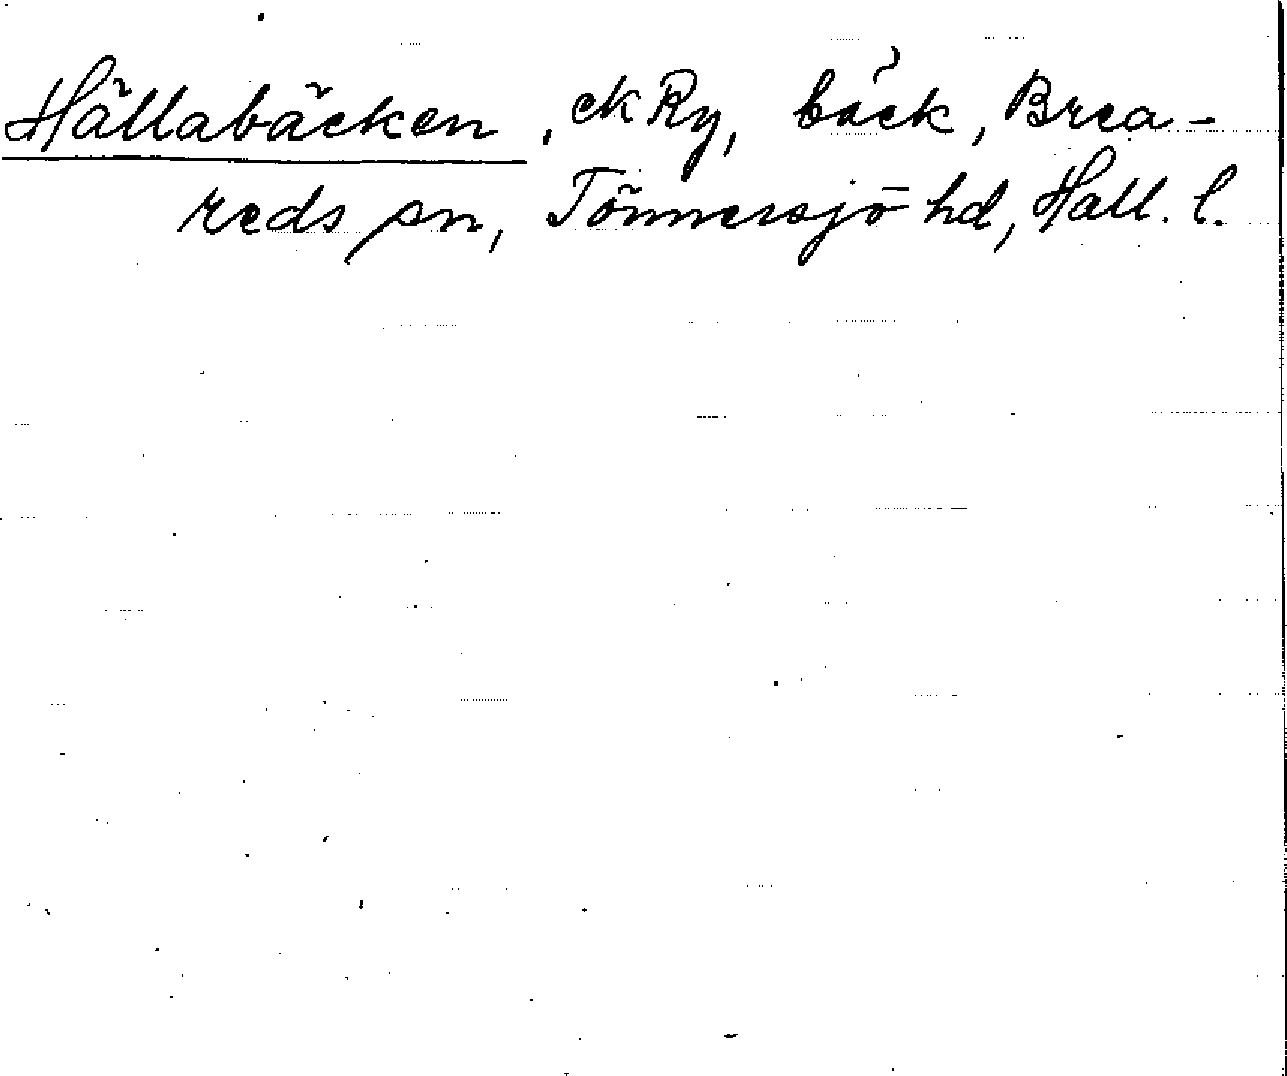 Hällabäcken, ek Ry, bäck, Brea-
reds sn, Tönnersjö hd, Hall. l.